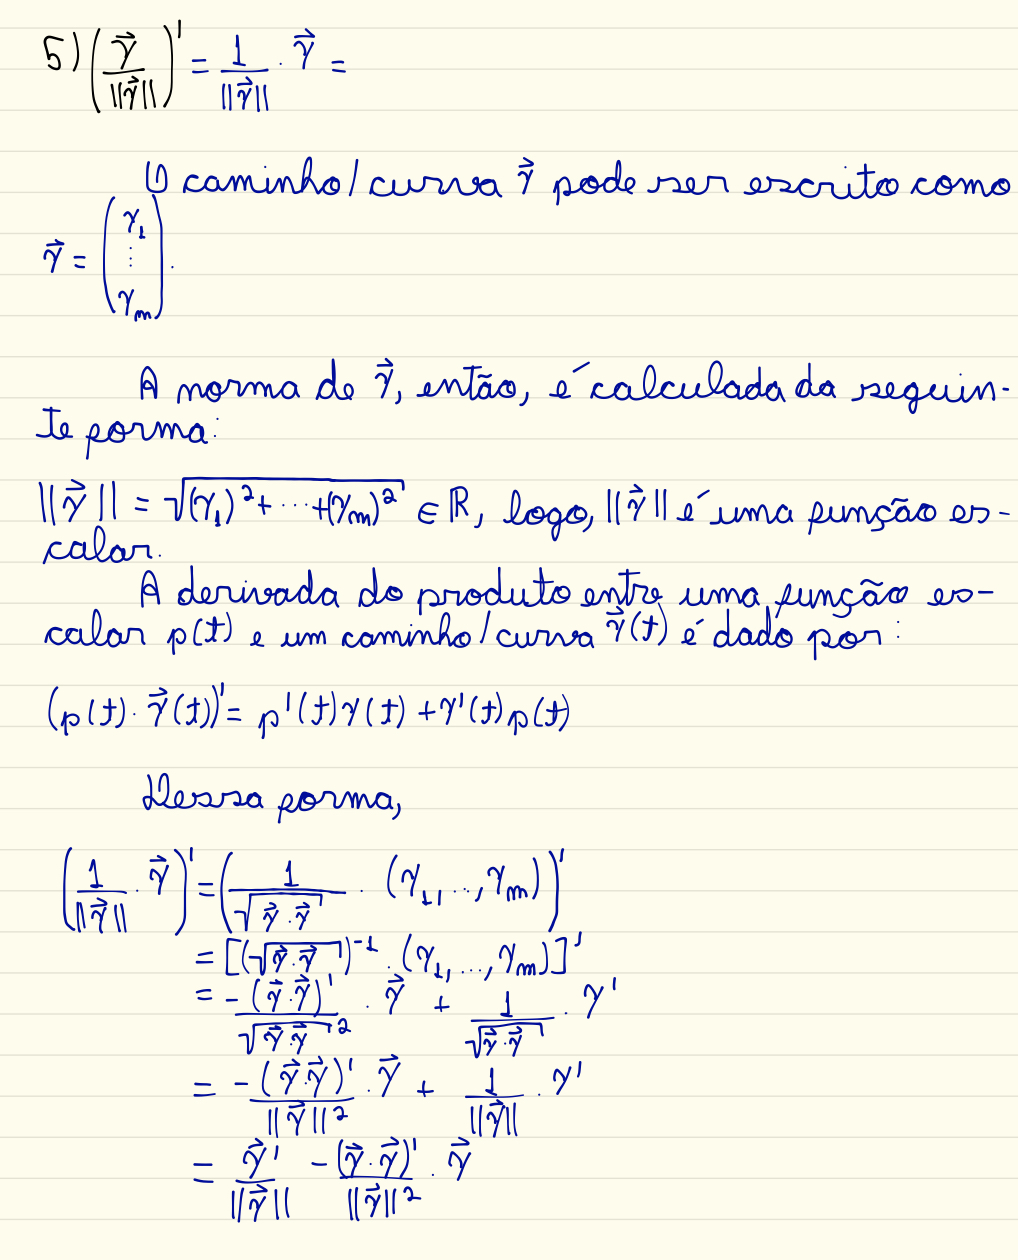 5) (γ⃗ / ||γ⃗||)' = 1/||γ⃗|| · γ⃗ =
O caminho/curva γ⃗ pode ser escrito como
γ⃗ = (γ₁ ⋮ γₘ).
A norma de γ⃗, então, é calculada da seguin-
te forma:
||γ⃗|| = √((γ₁)² + ··· + (γₘ)²) ∈ ℝ, logo, ||γ⃗|| é uma função es-
calar.
A derivada do produto entre uma função es-
calar p(t) e um caminho/curva γ⃗(t) é dado por:
(p(t) · γ⃗(t))' = p'(t)γ(t) + γ'(t)p(t)
Dessa forma,
(1/||γ⃗|| · γ⃗)' = (1/√(γ⃗·γ⃗) · (γ₁, ..., γₘ))'
= [(√(γ⃗·γ⃗))⁻¹ · (γ₁, ..., γₘ)]'
= -(γ⃗·γ⃗)'/√(γ⃗·γ⃗)² · γ⃗ + 1/√(γ⃗·γ⃗) · γ'
= -(γ⃗·γ⃗)'/||γ⃗||² · γ⃗ + 1/||γ⃗|| · γ'
= γ⃗'/||γ⃗|| - (γ⃗·γ⃗)'/||γ⃗||² · γ⃗